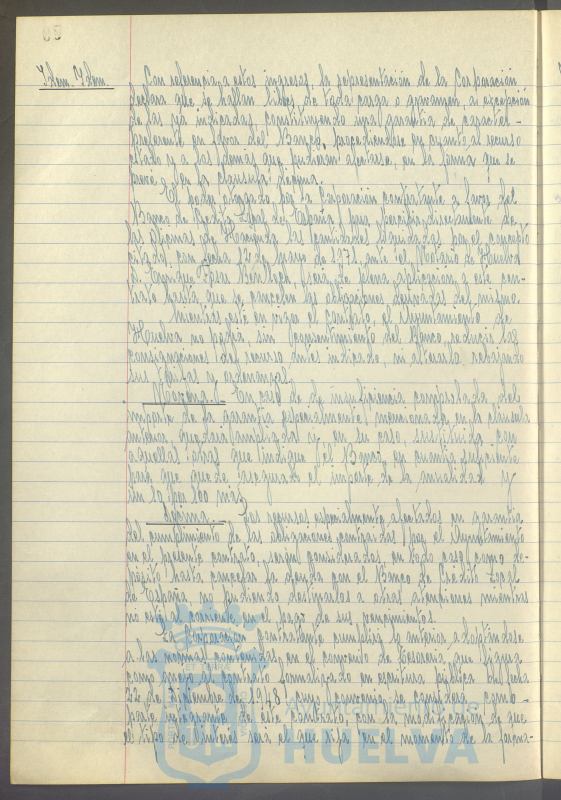 Idem. Idem.
Con referencia a estos ingresos, la representación de la Corporación
declara que se hallan libres de toda carga o gravamen, a excepción
de las ya indicadas, constituyendo una garantía de carácter
preferente en favor del Banco, procediéndose en cuanto al recurso
citado y a los demás que pudieran afectarse, en la forma que se
prevé en la cláusula décima.
El poder otorgado por la Corporación contratante a favor del
Banco de Crédito Local de España para percibir directamente de
las Oficinas de Hacienda las cantidades liquidadas por el concepto
citado, con fecha 12 de mayo de 1971, ante el Notario de Huelva
D. Enrique, será de plena aplicación a este con-
trato hasta que se cancelen las obligaciones derivadas del mismo.
Mientras esté en vigor el contrato, el Ayuntamiento de
Huelva no podrá, sin consentimiento del Banco, reducir las
consignaciones del recurso antes indicado, ni alterarlo rebajando
sus tarifas y ordenanzas.
Novena.- En caso de insuficiencia comprobada del
importe de la garantía especialmente mencionada en la cláusula
anterior, quedará ampliada y, en su caso, sustituida con
aquellas otras que indique el Banco en cuantía suficiente
para que quede asegurado el importe de la anualidad y
un 10 por 100 más.
Décima.- Los recursos especialmente afectados en garantía
del cumplimiento de las obligaciones contraídas por el Ayuntamiento
en el presente contrato, serán considerados en todo caso, como de-
pósito hasta cancelar la deuda con el Banco de Crédito Local
de España, no pudiendo destinarlos a otras atenciones mientras
no esté al corriente en el pago de sus vencimientos.
La Corporación Contratante cumplirá lo anterior adaptándose
a las normas contenidas en el convenio de Tesorería que figura
como anexo al contrato formalizado en escritura pública en fecha
22 de diciembre de 1948, cuyo convenio se considera como
parte integrante de este contrato, con la modificación de que
el tipo de interés será el que rija en el momento de la forma-
Ayuntamiento de
HUELVA